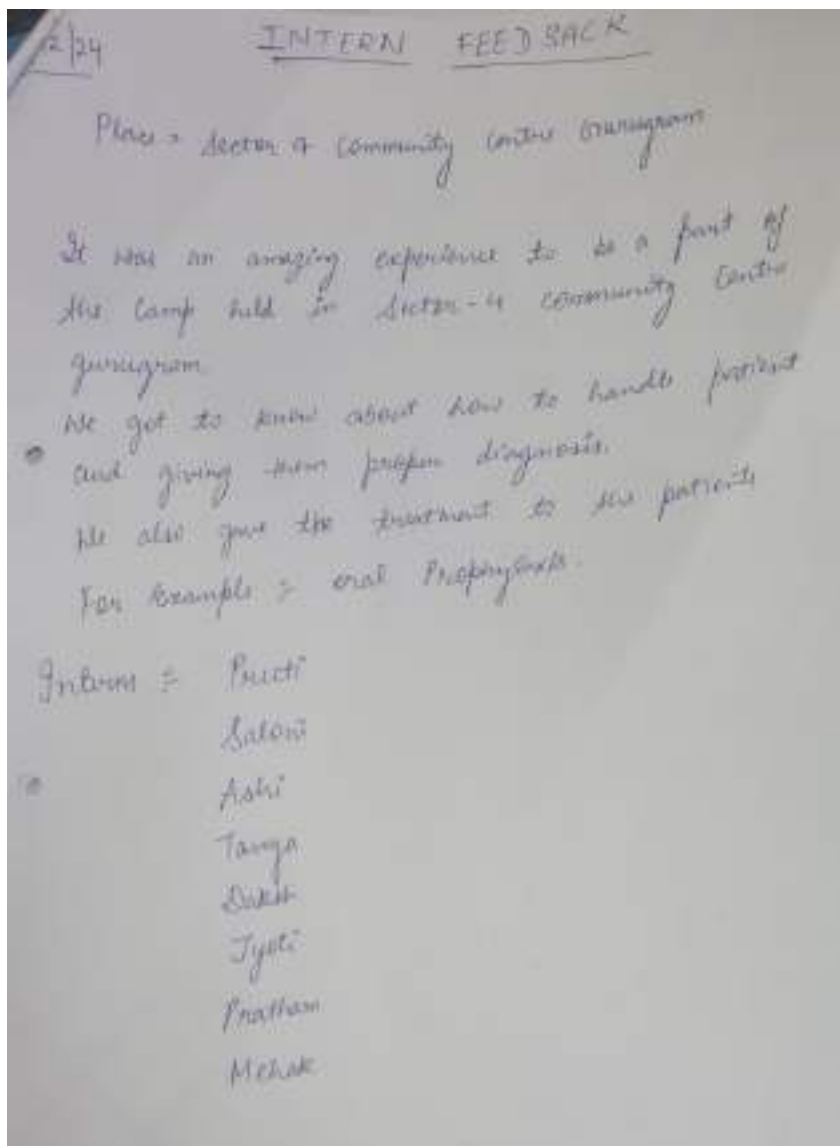 2/24
INTERN FEEDBACK
Place = Sector 4 Community Centre Gurugram
It was an amazing experience to be a part of
the Camp held in Sector-4 community Centre
gurugram.
We got to know about how to handle patient
and giving them proper diagnosis.
We also gave the treatment to the patients
For Example :- oral Prophylaxis.
Intern :- Preeti
Saloni
Ashi
Tanya
Daksh
Jyoti
Pratham
Mehak